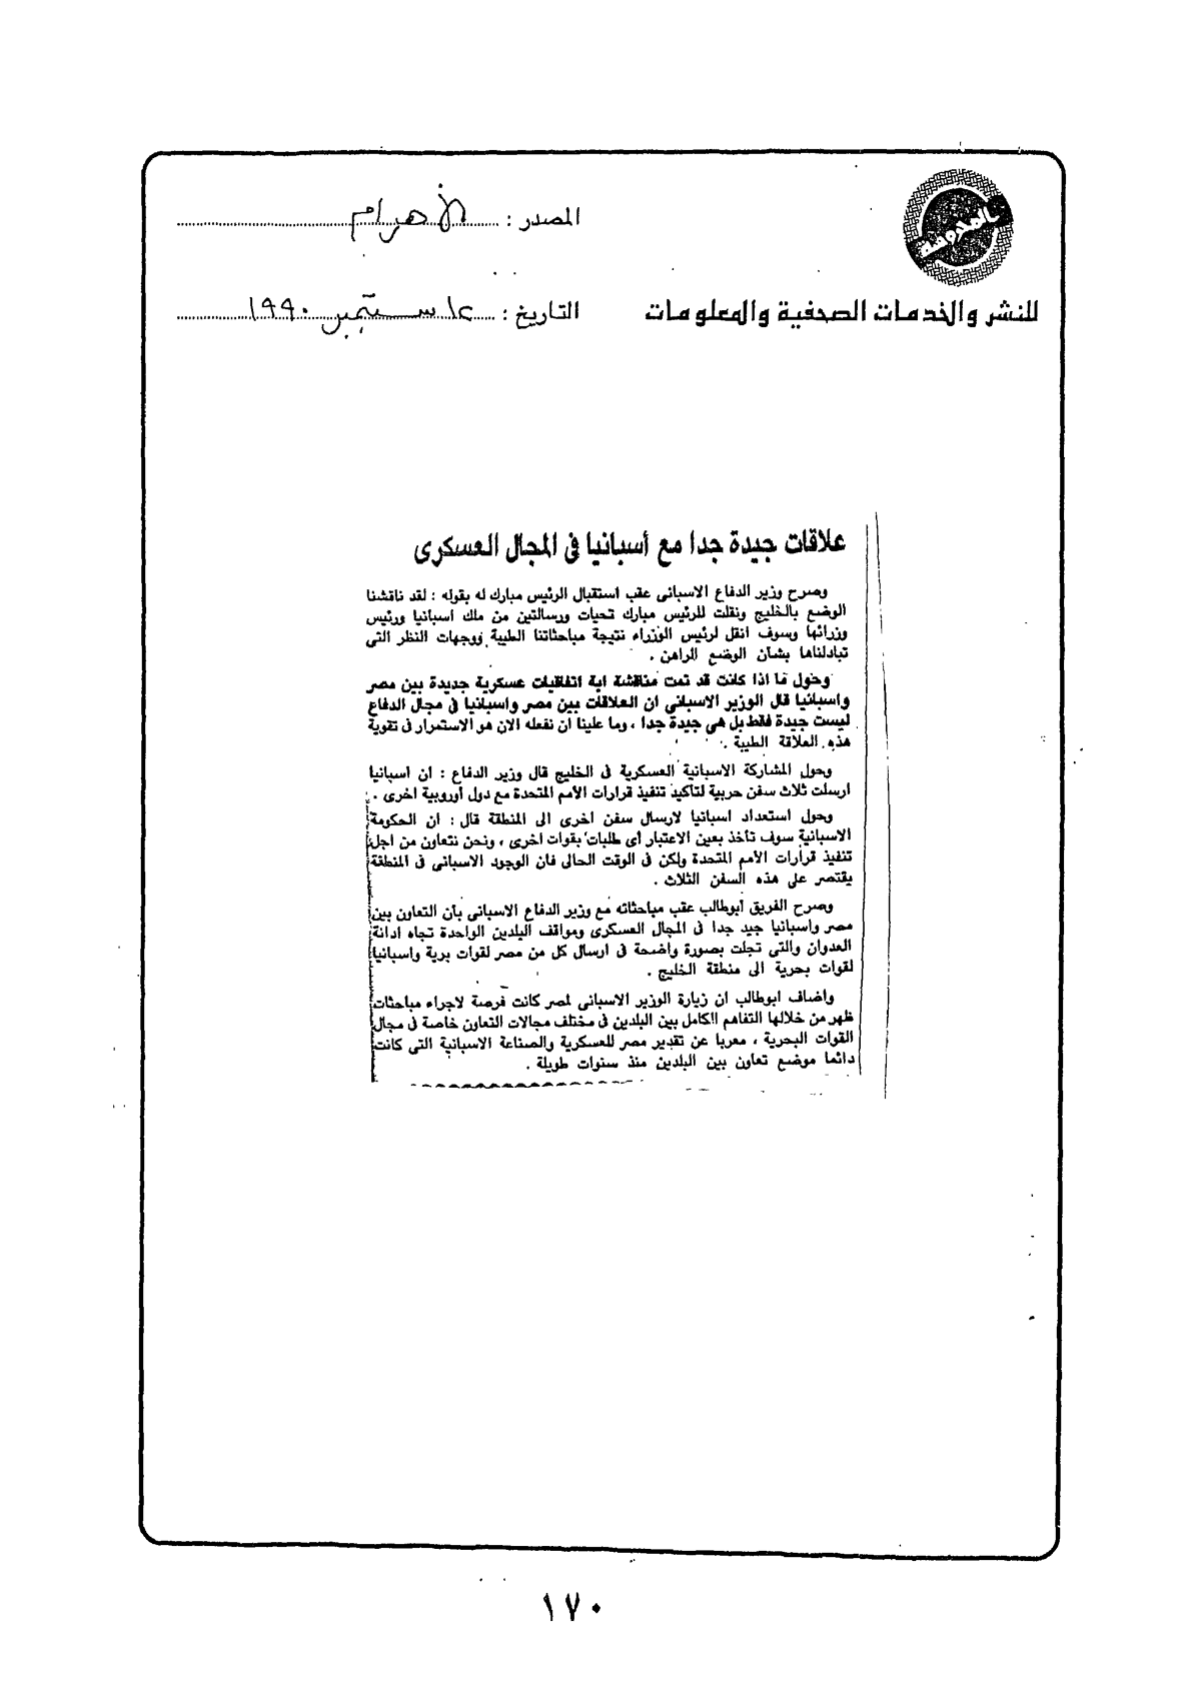 المصدر : الأهرام
المحروسة
للنشر والخدمات الصحفية والمعلومات
التاريخ : ١٢ سبتمبر ١٩٩٠
علاقات جيدة جدا مع أسبانيا فى المجال العسكرى
وصرح وزير الدفاع الاسبانى عقب استقبال الرئيس مبارك له بقوله : لقد ناقشنا
الوضع بالخليج ونقلت للرئيس مبارك تحيات ورسالتين من ملك اسبانيا ورئيس
وزرائها وسوف انقل لرئيس الوزراء نتيجة مباحثاتنا الطيبة ووجهات النظر التى
تبادلناها بشأن الوضع الراهن .
وحول ما اذا كانت قد تمت مناقشة اية اتفاقيات عسكرية جديدة بين مصر
واسبانيا قال الوزير الاسبانى ان العلاقات بين مصر واسبانيا فى مجال الدفاع
ليست جيدة فقط بل هى جيدة جدا ، وما علينا ان نفعله الان هو الاستمرار فى تقوية
هذه العلاقة الطيبة .
وحول المشاركة الاسبانية العسكرية فى الخليج قال وزير الدفاع : ان اسبانيا
ارسلت ثلاث سفن حربية لتاكيد تنفيذ قرارات الأمم المتحدة مع دول اوروبية اخرى .
وحول استعداد اسبانيا لارسال سفن اخرى الى المنطقة قال : ان الحكومة
الاسبانية سوف تأخذ بعين الاعتبار أى طلبات بقوات اخرى ، ونحن نتعاون من اجل
تنفيذ قرارات الأمم المتحدة ولكن فى الوقت الحالى فان الوجود الاسبانى فى المنطقة
يقتصر على هذه السفن الثلاث .
وصرح الفريق أبوطالب عقب مباحثاته مع وزير الدفاع الاسبانى بأن التعاون بين
مصر واسبانيا جيد جدا فى المجال العسكرى ومواقف البلدين الواحدة تجاه ادانة
العدوان والتى تجلت بصورة واضحة فى ارسال كل من مصر لقوات برية واسبانيا
لقوات بحرية الى منطقة الخليج .
واضاف ابوطالب ان زيارة الوزير الاسبانى لمصر كانت فرصة لاجراء مباحثات
ظهر من خلالها التفاهم الكامل بين البلدين فى مختلف مجالات التعاون خاصة فى مجال
القوات البحرية ، معربا عن تقدير مصر للعسكرية والصناعة الاسبانية التى كانت
دائما موضع تعاون بين البلدين منذ سنوات طويلة .
١٧٠